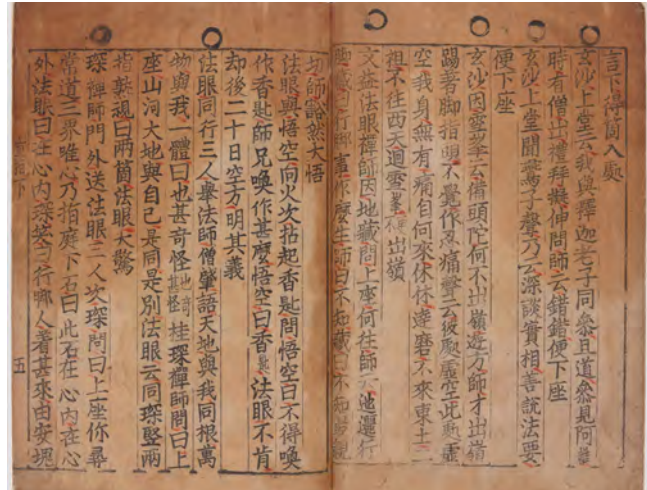 言下得箇入處
玄沙上堂云我與釋迦老子同叅且道叅見阿誰
時有僧出禮拜擬伸問師云錯錯便下座
玄沙上堂聞鷰子聲乃云深談實相善說法要
便下座
玄沙因雪峯云備頭陀何不出嶺遊方師才出嶺
踢著脚指頭不覺作忍痛聲云彼處虛空此處虛
空我身無有痛自何來休休達磨不來東土二
祖不往西天迴雪峯 出嶺
文益法眼禪師因地藏問上座何往師云迤邐行
脚藏曰行脚事作麽生師曰不知藏曰不知最親
切師豁然大悟
法眼與悟空向火次拈起香匙問悟空曰不得喚
作香匙師兄喚作甚麽悟空曰香匙法眼不肯
却後二十日空方明其義
法眼同行三人舉法師僧肇語天地與我同根萬
物與我一體曰也甚奇怪也奇甚怪桂琛禪師問曰上
座山河大地與自己是同是別法眼云同琛竪兩
指熟視曰兩箇法眼大驚
琛禪師門外送法眼二人次琛問曰上座你尋
常道三界唯心乃指庭下石曰此石在心內在心
外法眼曰在心內琛笑曰行脚人著甚來由安塊
直指下 五